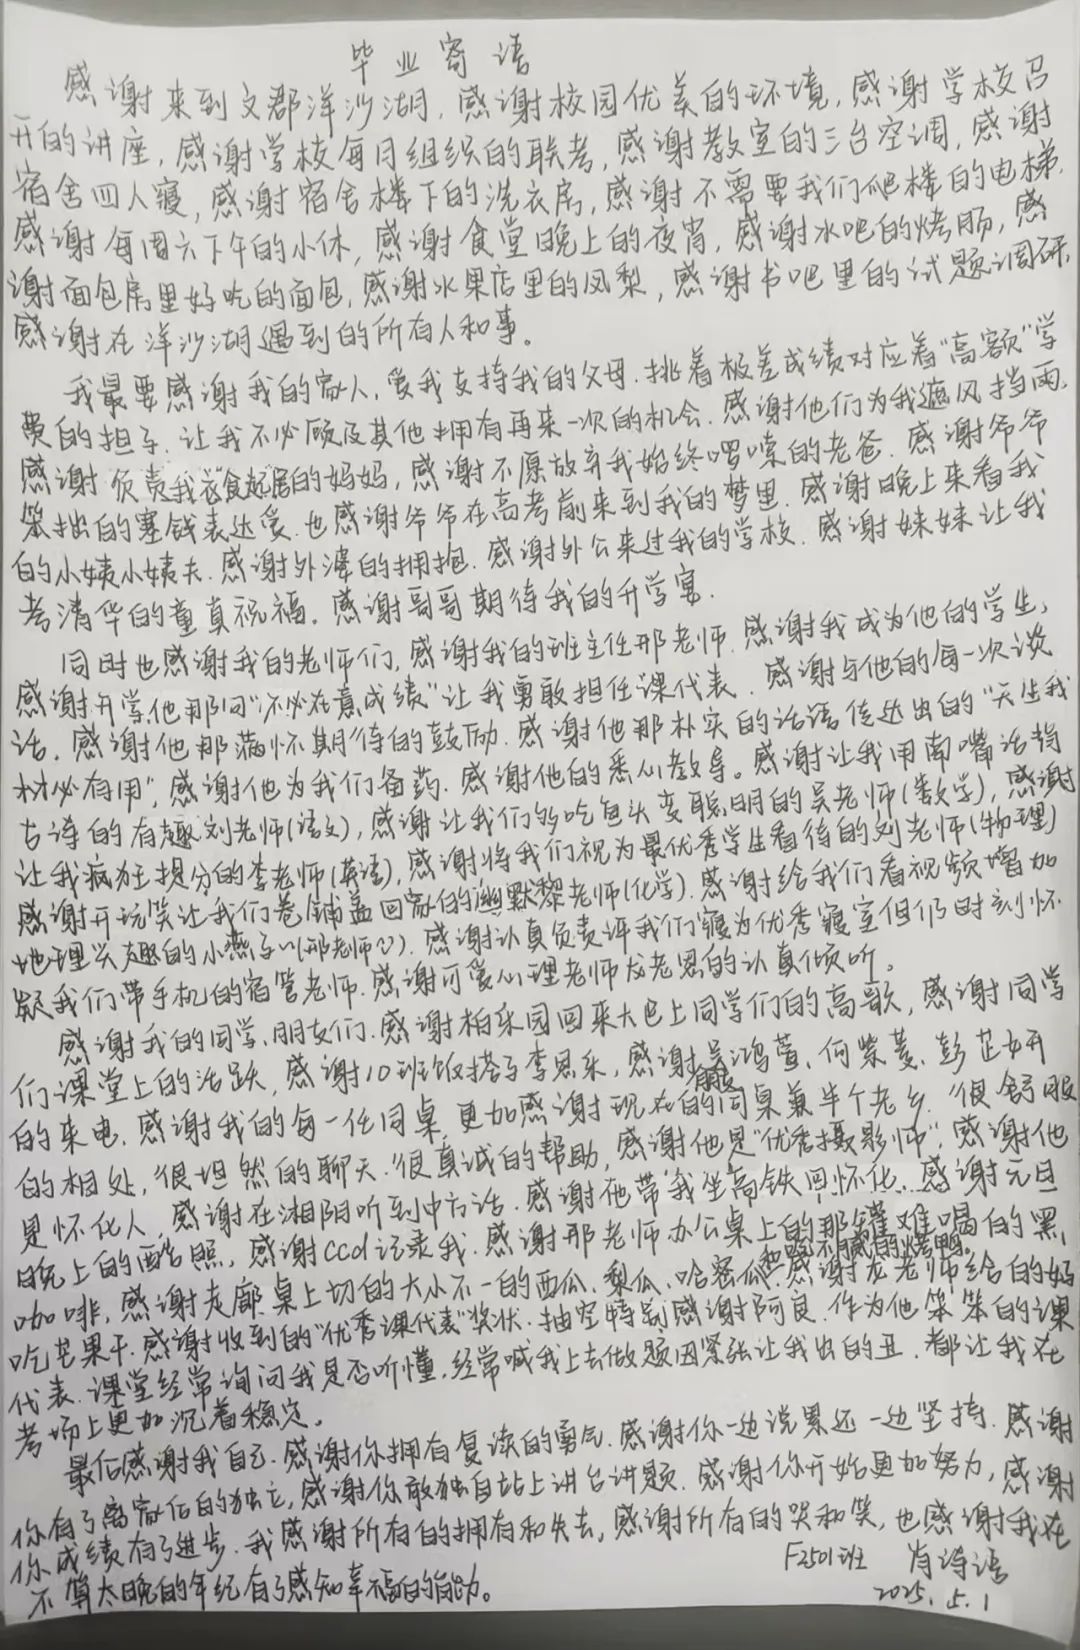 毕业寄语
感谢来到文郡洋沙湖,感谢校园优美的环境,感谢学校召
开的讲座,感谢学校每月组织的联考,感谢教室的三台空调,感谢
宿舍四人寝,感谢宿舍楼下的洗衣房,感谢不需要我们爬楼的电梯.
感谢每周六下午的小休,感谢食堂晚上的夜宵,感谢水吧的烤肠,感
谢面包房里好吃的面包,感谢水果店里的凤梨,感谢书吧里的试题调研,
感谢在洋沙湖遇到的所有人和事。
我最要感谢我的家人,爱我支持我的父母.挑着极差成绩对应着“高额”学
费的担子.让我不必顾及其他拥有再来一次的机会.感谢他们为我遮风挡雨.
感谢负责我衣食起居的妈妈,感谢不愿放弃我始终啰嗦的老爸.感谢爷爷
笨拙的塞钱表达爱.也感谢爷爷在高考前来到我的梦里.感谢晚上来看我
的小姨小姨夫.感谢外婆的拥抱.感谢外公来过我的学校.感谢妹妹让我
考清华的童真祝福。感谢哥哥期待我的升学宴.
同时也感谢我的老师们,感谢我的班主任邢老师.感谢我成为他的学生,
感谢开学他那问“不必在意成绩”让我勇敢担任课代表.感谢与他的每一次谈
话.感谢他那满怀期待的鼓励.感谢他那朴实的话语传达出的“天生我
材必有用”,感谢他为我们备药.感谢他的悉心教导。感谢让我用南嘴话背
古诗的有趣刘老师(语文),感谢让我们多吃包头变聪明的吴老师(数学),感谢
让我疯狂提分的李老师(英语),感谢将我们视为最优秀学生看待的刘老师(物理)
感谢开玩笑让我们卷铺盖回家的幽默黎老师(化学).感谢给我们看视频增加
地理兴趣的小燕子~(邢老师~).感谢认真负责评我们寝为优秀寝室但仍时刻怀
疑我们带手机的宿管老师.感谢可爱心理老师龙老恩的认真倾听。
感谢我的同学,朋友们.感谢柏乐园回来大巴上同学们的高歌,感谢同学
们课堂上的活跃,感谢10班饭搭子李思乐,感谢吴鸿萱、何紫菱、彭芷妍
的来电.感谢我的每一任同桌,更加感谢现在的同桌兼半个老乡.很舒服
的相处,很坦然的聊天.很真诚的帮助,感谢他是“优秀摄影师”,感谢他
是怀化人,感谢在湘阴听到中方话.感谢他带我坐高铁回怀化.感谢元旦
晚上的合照,感谢ccd记录我.感谢邢老师办公桌上的那罐难喝的黑
咖啡,感谢走廊桌上切的大小不一的西瓜、梨瓜、哈密瓜和吃不腻的烤鸭。感谢龙老师给的好
吃芒果干.感谢收到的“优秀课代表”奖状.抽空特别感谢阿良.作为他笨笨的课
代表.课堂经常询问我是否听懂,经常喊我上去做题因紧张让我出的丑.都让我在
考场上更加沉着稳定。
最后感谢我自己.感谢你拥有复读的勇气.感谢你一边说累还一边坚持.感谢
你有了离家后的独立,感谢你敢独自站上讲台讲题.感谢你开始更加努力,感谢
你成绩有了进步.我感谢所有的拥有和失去,感谢所有的哭和笑,也感谢我在
不算太晚的年纪有了感知幸福的自幼。
F2501班 肖诗语
2025.5.1